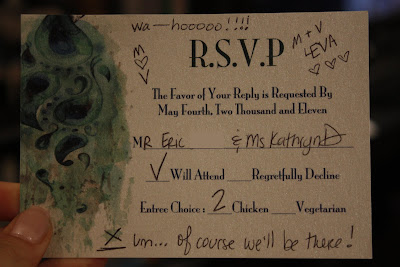 wa-hooooo!!!!
<3
R.S.V.P
M + V
4EVA
The Favor of Your Reply is Requested By
May Fourth, Two Thousand and Eleven
MR Eric & Ms Kathryn D
√ Will Attend ____ Regretfully Decline
Entree Choice : 2 Chicken ____ Vegetarian
X um... of course we'll be there!